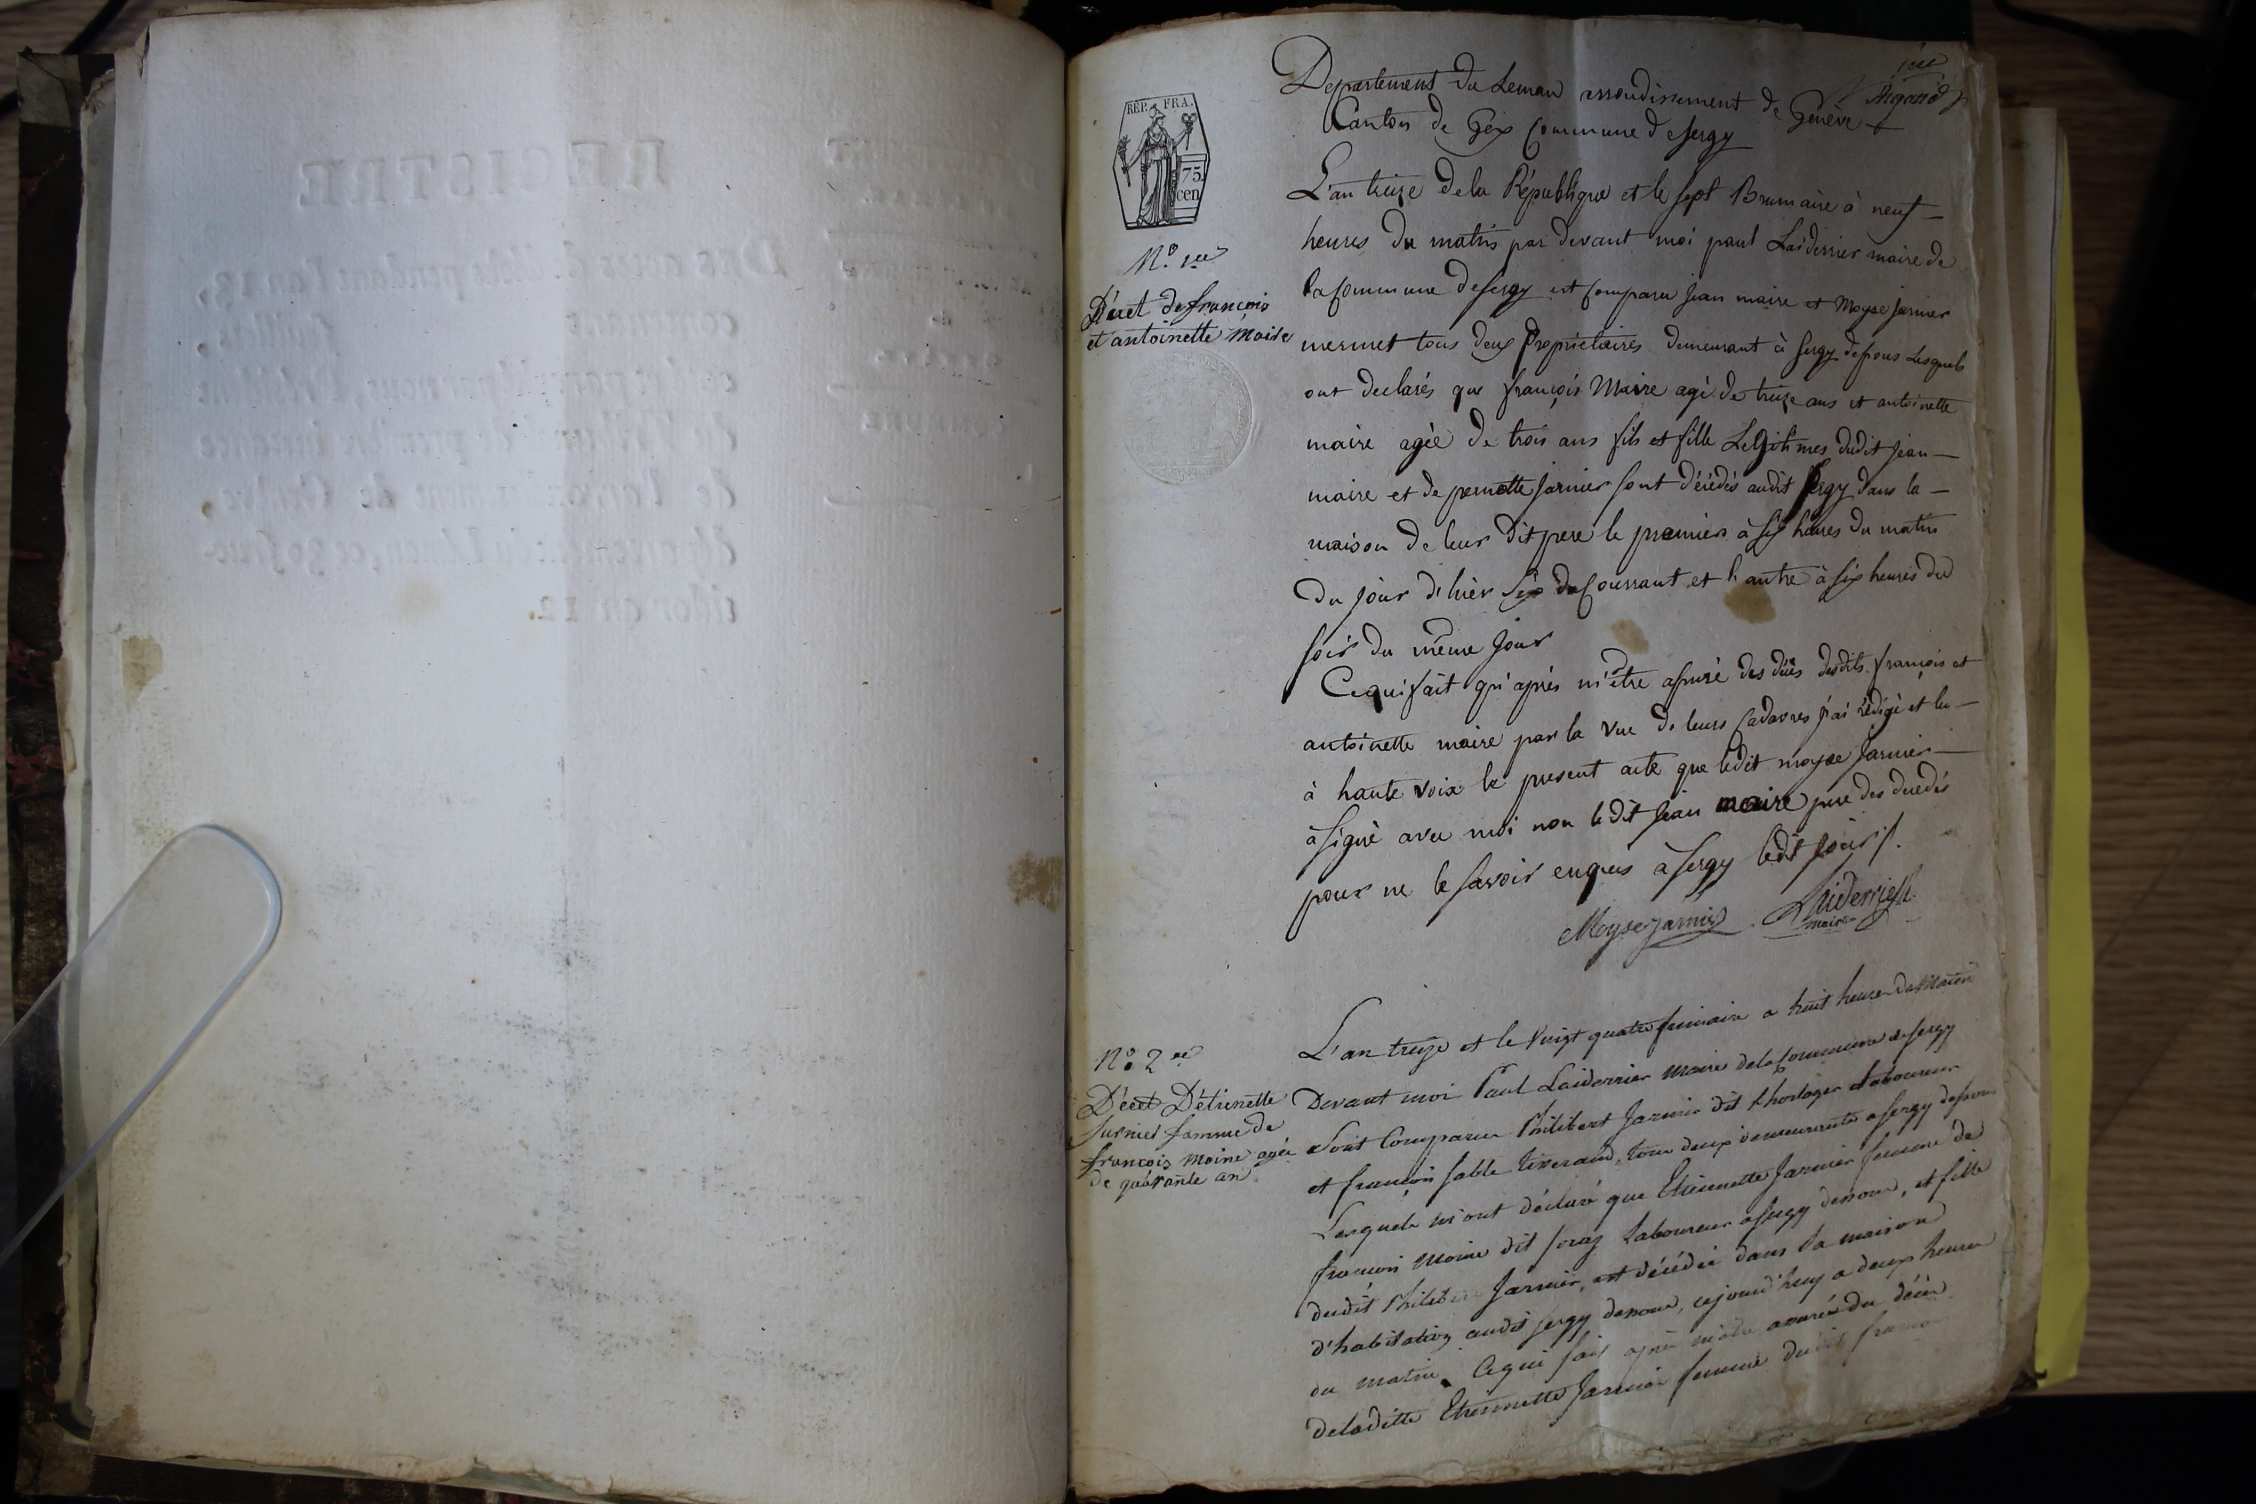 REGISTRE
REP. FRA.
75
cen
Departement du Leman arrondissement de Genève
Canton de Gex Commune de Sergy
N.o 1.er
Décet de françois
et antoinette Maire
L'an treize de la République et le sept Brumaire à neuf
heures du matin par devant moi paul Laiderrier maire de
la Commune de Sergy est comparu jean maire et Moyse Jarnier
mermet tous deux Propriétaires demeurant à Sergy dessous Lesquels
ont declarés que françois Maire agé de treize ans et antoinette
maire agée de trois ans fils et fille Legitimes dudit jean
maire et de pernette Jarnier sont décédés audit Sergy dans la
maison de leur dit pere le premier à six heures du matin
du jour d'hier six du Courrant et l'autre à six heures du
soir du même jour
Ce qui fait qu'après m'être assuré des décès desdits françois et
antoinette maire par la vue de leurs Cadavres j'ai rédigé et lu
à haute voix le present acte que ledit moyse Jarnier
à signé avec moi non le dit Jean maire pere des decedés
pour ne le savoir enquis à Sergy ledit jour
Moyse Jarnier Laiderrier
maire
N.o 2.e
Décet D'étienette
Jarnier famme de
françois Moine agée
de quarante an
L'an treize et le vingt quatre frimaire a huit heure du Matin
Devant moi Paul Laiderrier Maire de la Commune de Sergy
Sont Comparu Philibert Jarnier dit l'horloger Laboureur
et françoi fable tisserand, tous deux demeurants a Sergy dessous
Lesquels m'ont déclaré que Etiennette Jarnier femme de
françois Moine dit Laboureur a Sergy dessous, et fille
dudit Philibert Jarnier, est décédée dans sa maison
d'habitation audit Sergy dessous, cejourd'huy a deux heures
du matin. Ce qui fait après m'etre assuré du décès
de ladite Etiennette Jarnier femme dudit françois